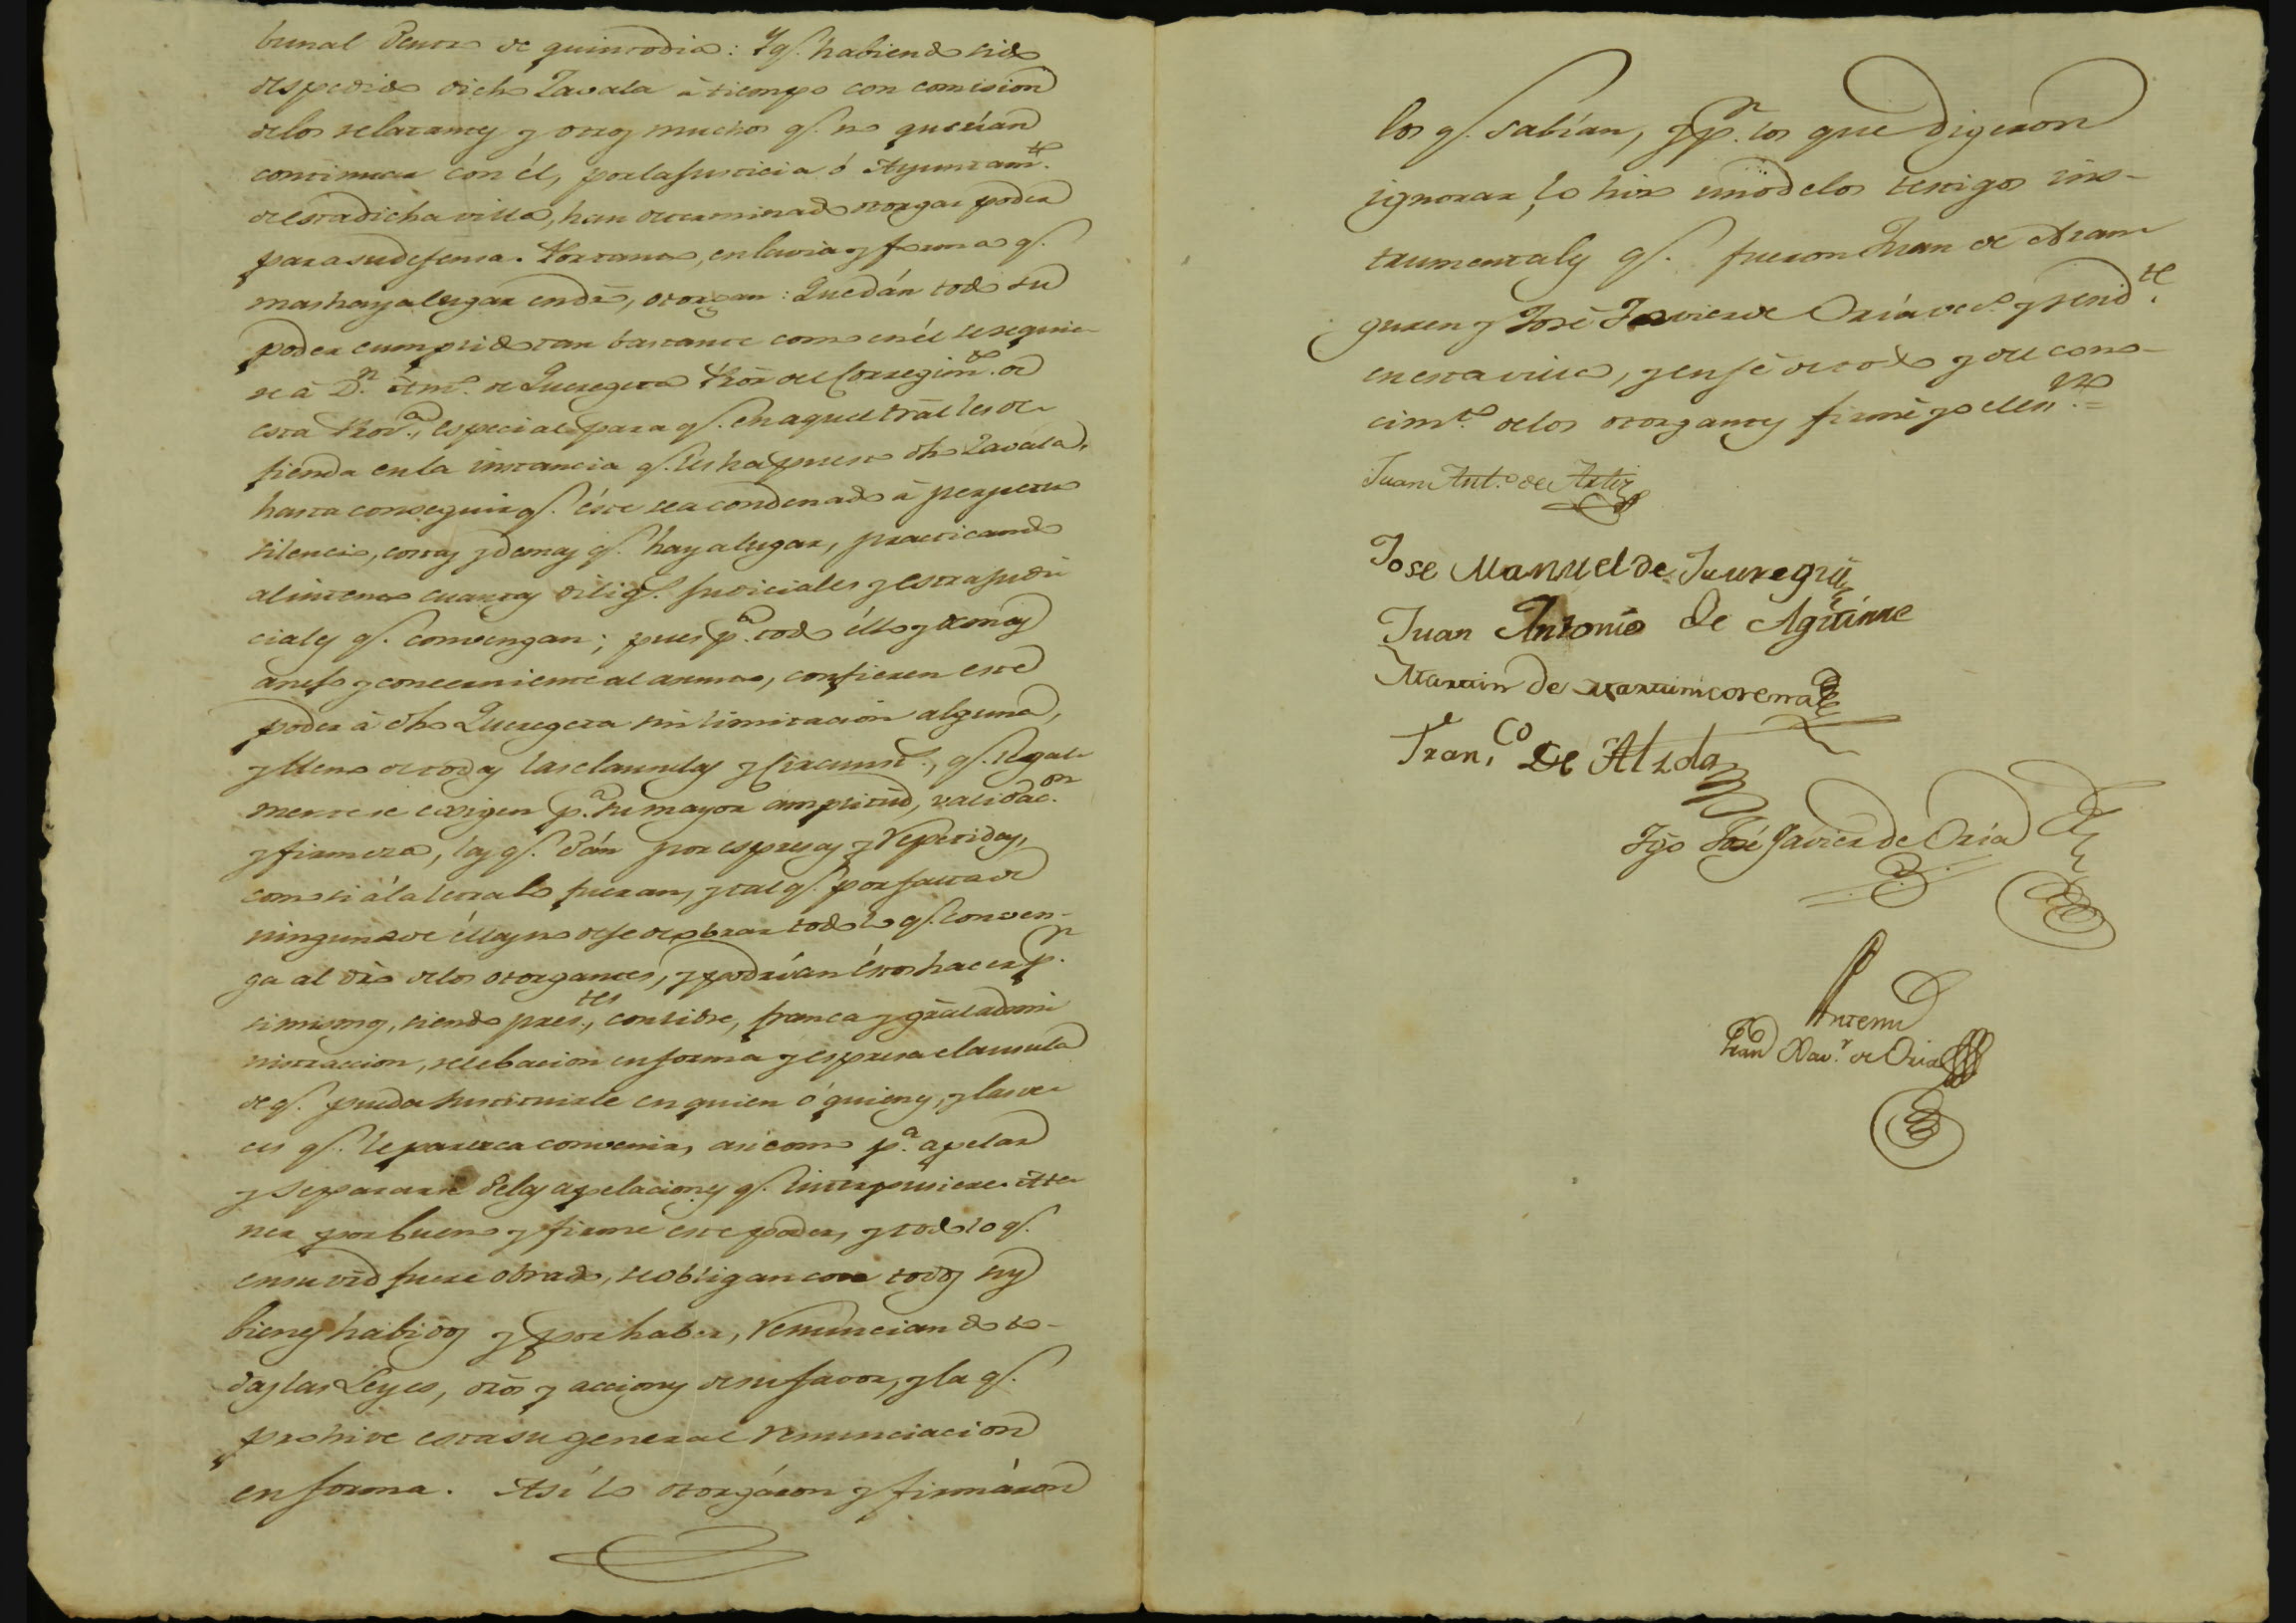 bunal dentro de quinto dia: Y q.e habiendo sido
despedido dicho Zavala à tiempo con comision
de los relatantes y otros muchos q.e no querian
continuar con él, por la Justicia ó Ayuntam.to
de esta dicha villa, han determinado otorgar poder
para su defensa. Por tanto, en la via y forma q.e
mas haya lugar en dro, otorgan: Que dán todo su
poder cumplido tan bastante como en él se requie-
re à D.n Ant.o de Queregeta Pror. del Corregim.to de
esta Prov.a, especial para q.e en aquel trãl les de-
fienda en la instancia q.e les ha puesto dho Zavala,
hasta conseguir q.e éste sea condenado à perpetuo
silencio, costas y demas q.e haya lugar, practicando
al intento cuantas dilig.s judiciales y estrajudi-
ciales q.e convengan; pues p.a todo éllo y demás
anejo y concerniente al asunto, confieren este
poder à dho Queregeta sin limitacion alguna,
y lleno de todas las clausulas y circunst.s, q.e legal-
mente se exigen p.a su mayor amplitud, validac.on
y firmeza, las q.e dán por espresas y repetidas,
como si á la letra lo fueran, y tal q.e por falta de
ninguna de éllas no deje de obrar todo lo q.e conven-
ga al dro de los otorgantes, y podrían éstos hacer p.r
si mismos, siendo pres.tes, con libre, franca y grãl admi-
nistraccion, relebacion en forma y espresa clausula
de q.e pueda sustituirle en quien ó quienes, y las ve-
ces q.e le parezca convenir, asi como p.a apelar
y separarse de las apelaciones q.e interpusiere. A te-
ner por bueno y firme este poder, y todo lo q.e
en su vrd fuere obrado, se obligan con todos sus
bienes habidos y por haber, renunciando to-
das las Leyes, dros y acciones de su favor, y la q.e
prohive esta su general renunciacion
en forma. Asi lo otorgáron y firmáron
los q.e sabían, y p.r los que digeron
ignorar, lo hizo uno de los testigos ins-
trumentales q.e fueron Juan de Aram-
guren y José Javier de Oria vec.s y resid.tes
en esta villa, y en fé de todo y del cono-
cim.to de los otorgantes firmé yo el Ess.no =
Juan Ant.o de
Jose Manuel de Jauregui
Juan Antonio de Aguirre
Martin de Martinicorena
Fran.co de Alzola
Tgo José Javier de Oria
Antemi
Xav.r de Oria